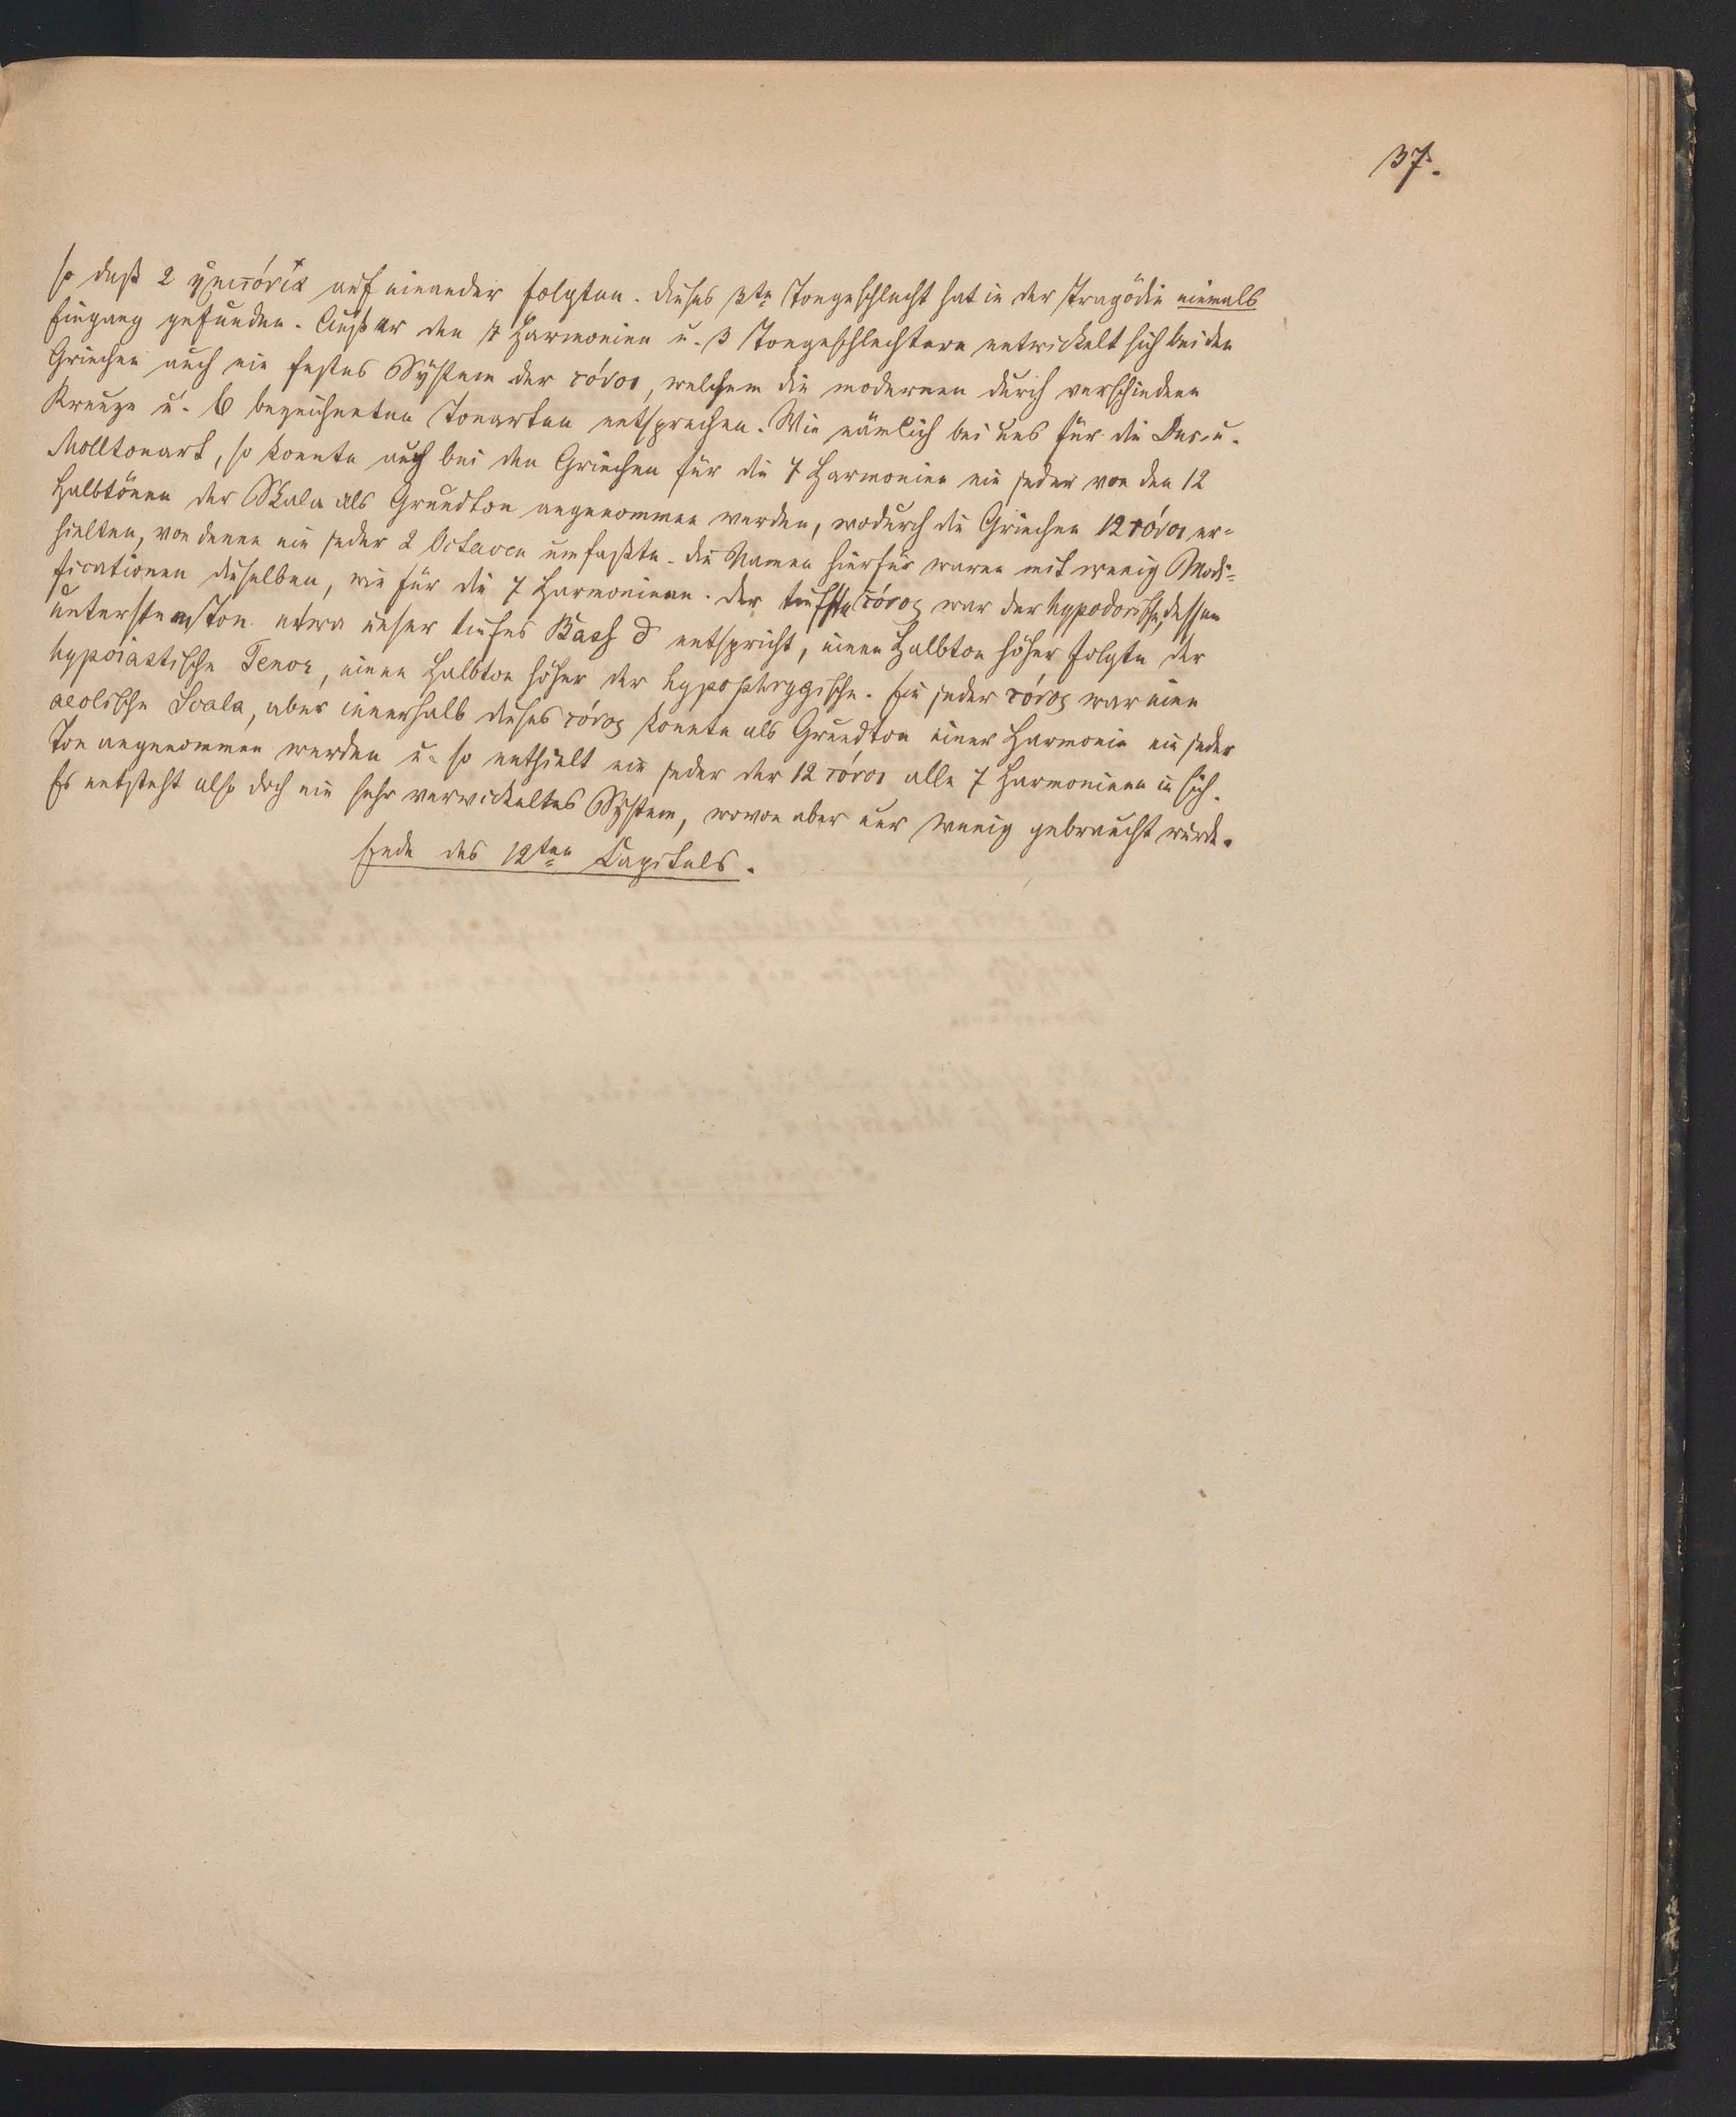 37.
so daß 2 ἡμιτόνια auf einander folgten. Dieses 3te Tongeschlecht hat in der Tragödie niemals
Eingang gefunden. Außer den 7 Harmonien u. 3 Tongeschlechtern entwickelt sich bei den
Griechen auch ein festes System der τόνοι, welchem die modernen durch verschiedene
Kreuze u. b bezeichneten Tonarten entsprechen. Wie nämlich bei uns für die Dur- u.
Molltonart, so konnte auch bei den Griechen für die 7 Harmonien ein jeder von den 12
Halbtönen der Skala als Grundton angenommen werden, wodurch die Griechen 12 τόνοι er-
hielten, von denen ein jeder 2 Octaven umfaßte. Die Namen hierfür waren mit wenig Modi-
ficationen dieselben, wie für die 7 Harmonieen. Der tiefste τόνος war der hypodorische, dessen
unterstem Ton etwa unser tiefes Bass d entspricht, einen Halbton höher folgte der
hypoiastische Tenor, einen Halbton höher der hypophrygische. Ein jeder τόνος war eine
aeolische Scala, aber innerhalb dieses τόνος konnte als Grundton einer Harmonie ein jeder
Ton angenommen werden u. so enthielt ein jeder der 12 τόνοι alle 7 Harmonieen in sich.
Es entsteht also doch ein sehr verwickeltes System, wovon aber nur wenig gebraucht wurde.
Ende des 12ten Capitels.